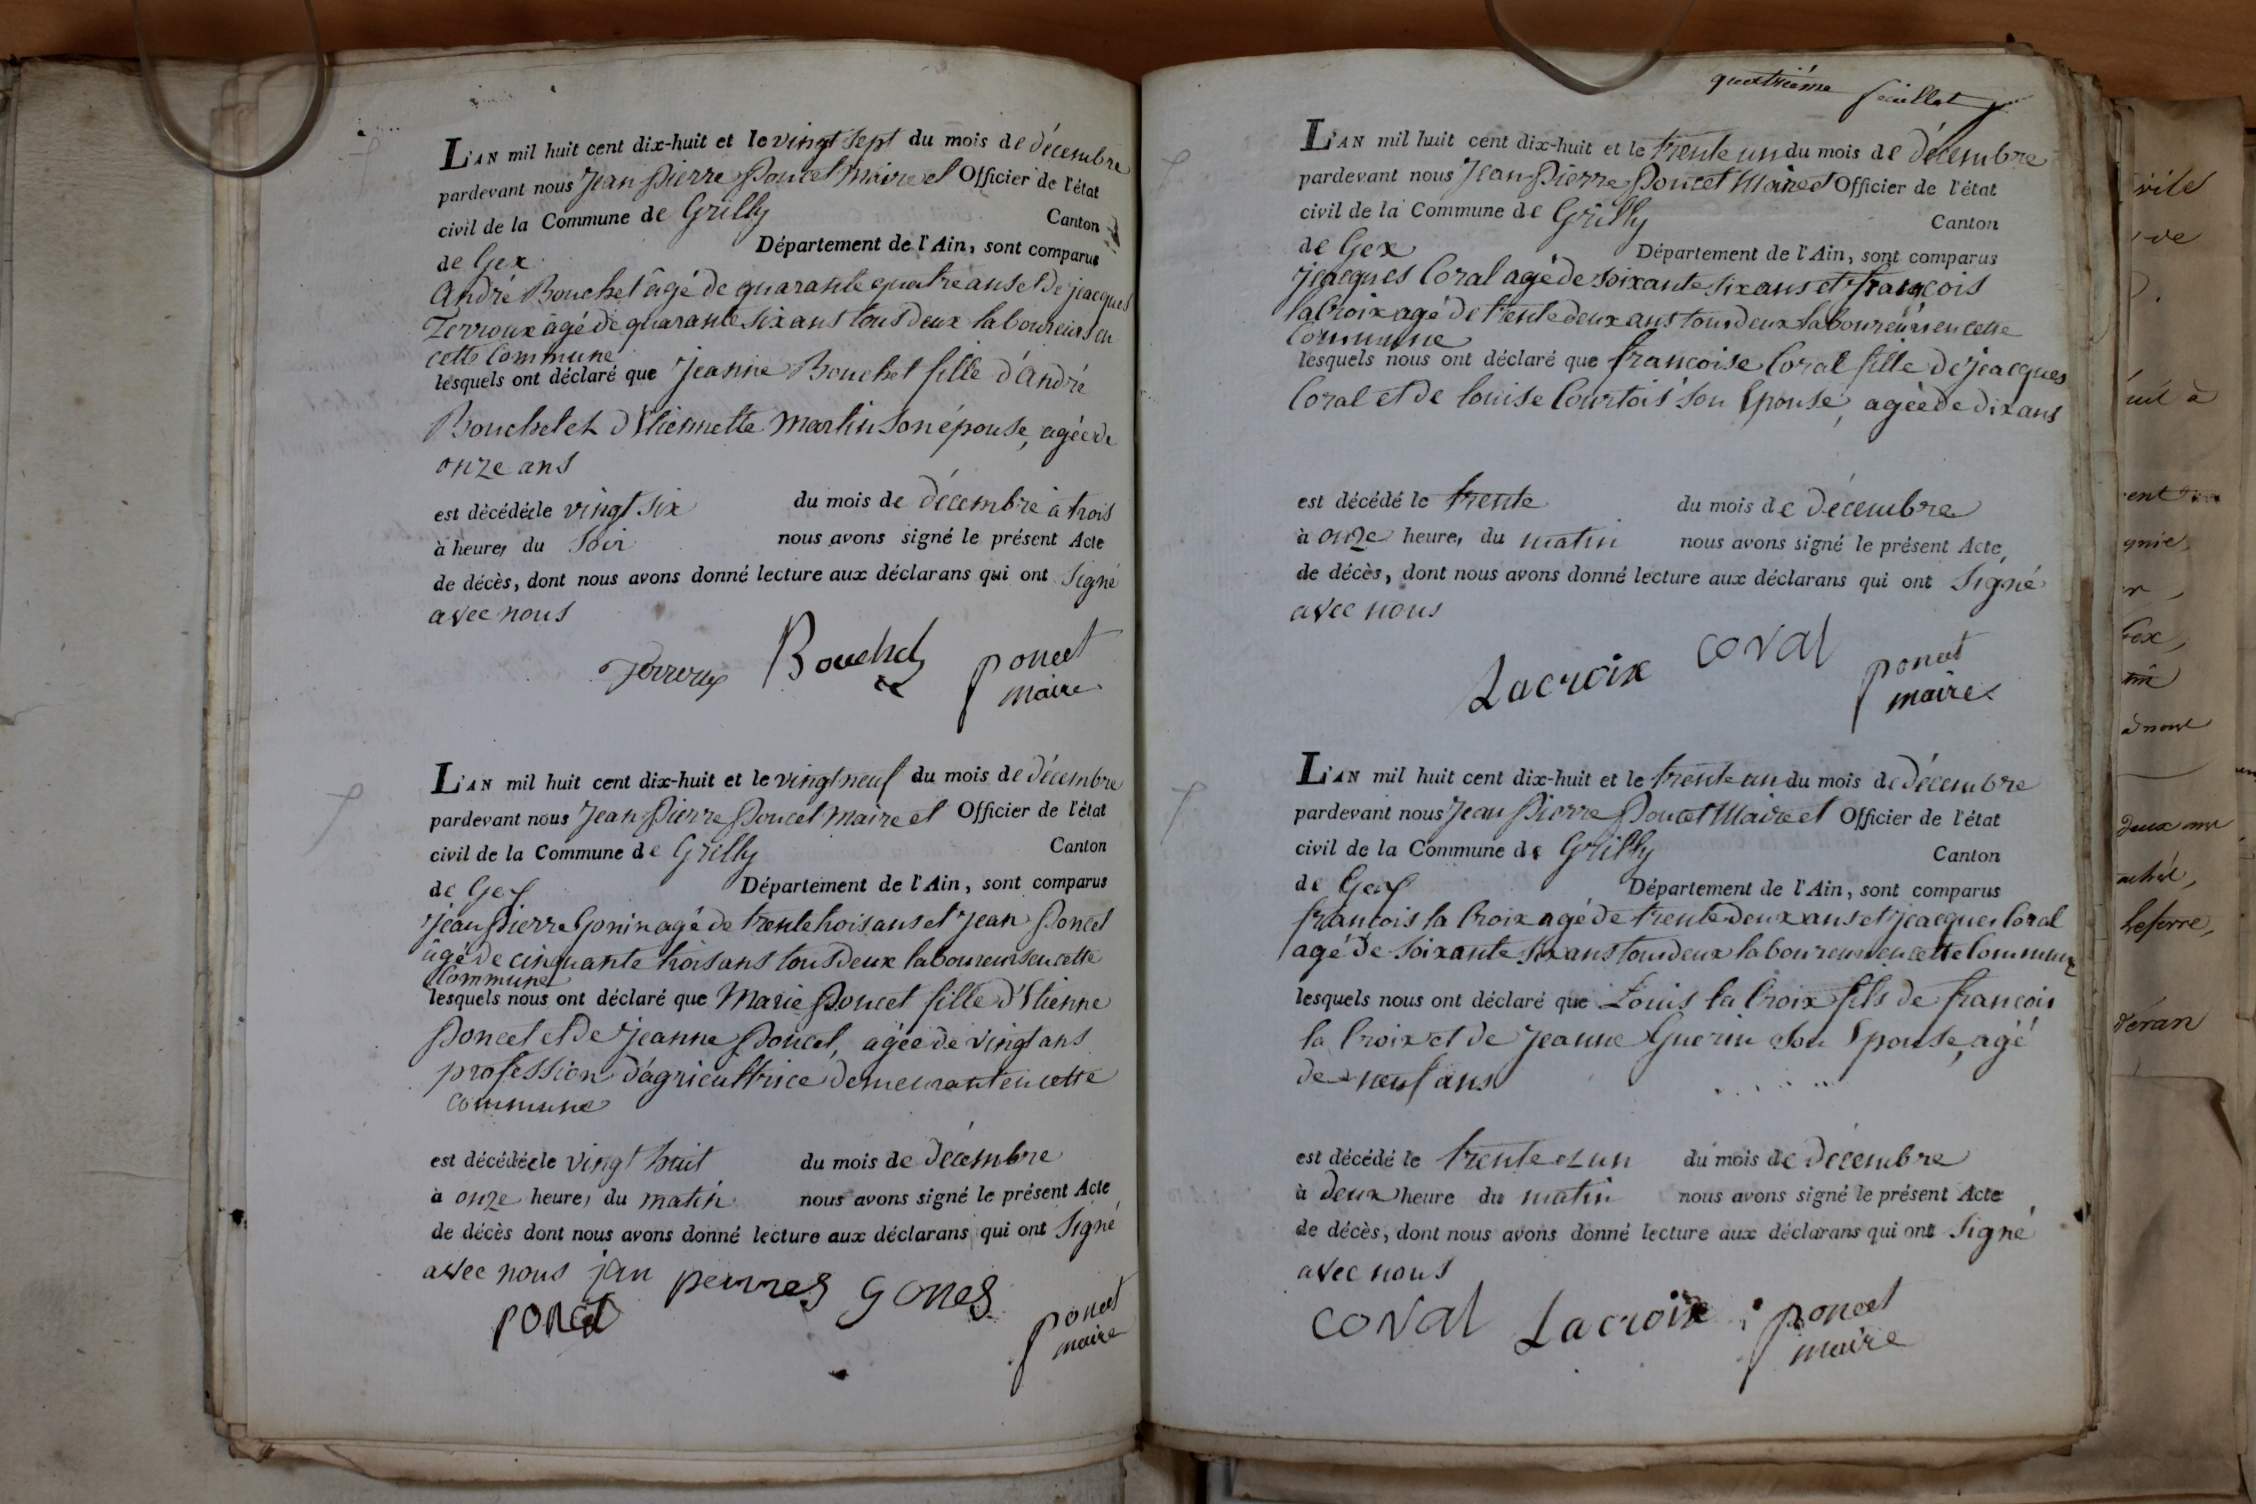 L'AN mil huit cent dix-huit et le vingt sept du mois de décembre
pardevant nous Jean Pierre Poncet maire et Officier de l'état
civil de la Commune de Grilly Canton
de Gex Département de l'Ain, sont comparus
André Bouchet âgé de quarante quatre ans et de jeacques
Terroux âgé de quarante six ans tous deux laboureurs en
cette Commune
lesquels ont déclaré que Jeanne Bouchet fille d'André
Bouchet et d'Etiennette Martin son épouse, agée de
onze ans
est décédée le vingt six du mois de décembre à trois
à heures du Soir nous avons signé le présent Acte
de décès, dont nous avons donné lecture aux déclarans qui ont Signé
avec nous
Terroux Bouchet poncet
maire
L'AN mil huit cent dix-huit et le vingt neuf du mois de décembre
pardevant nous Jean Pierre Poncet maire et Officier de l'état
civil de la Commune de Grilly Canton
de Gex Département de l'Ain, sont comparus
Jean Pierre Gonin agé de trente trois ans et Jean Poncet
âgé de cinquante trois ans tous deux laboureurs en cette
Commune
lesquels nous ont déclaré que Marie Poncet fille d'Etienne
Poncet et de Jeanne Poncet, agée de vingt ans
profession d'agricultrice demeurante en cette
commune
est décédée le vingt huit du mois de décembre
à onze heures du matin nous avons signé le présent Acte
de décès dont nous avons donné lecture aux déclarans qui ont Signé
avec nous jan perres gones
poncet
poncet
maire
quatriéme feuillet
L'AN mil huit cent dix-huit et le trente un du mois de décembre
pardevant nous Jean Pierre Poncet Maire et Officier de l'état
civil de la Commune de Grilly Canton
de Gex Département de l'Ain, sont comparus
jeacques Coral agé de soixante six ans et françois
la Croix agé de trente deux ans tous deux laboureurs en cette
Commune
lesquels nous ont déclaré que francoise Coral fille de jeacques
Coral et de louise Courtois son Epouse, agée de dix ans
est décédé le trente du mois de décembre
à onze heures du matin nous avons signé le présent Acte,
de décès, dont nous avons donné lecture aux déclarans qui ont Signé
avec nous
Lacroix coral poncet
maire
L'AN mil huit cent dix-huit et le trente un du mois de décembre
pardevant nous Jean Pierre Poncet Maire et Officier de l'état
civil de la Commune de Grilly Canton
de Gex Département de l'Ain, sont comparus
francois la Croix agé de trente deux ans et jeacques Coral
agé de soixante six ans tous deux laboureurs en cette Commune
lesquels nous ont déclaré que Louis la Croix fils de francois
la Croix et de Jeanne Guerin son Epouse, agé
de neuf ans
est décédé le trente et un du mois de décembre
à deux heure du matin nous avons signé le présent Acte
de décès, dont nous avons donné lecture aux déclarans qui ont Signé
avec nous
coral Lacroix poncet
maire